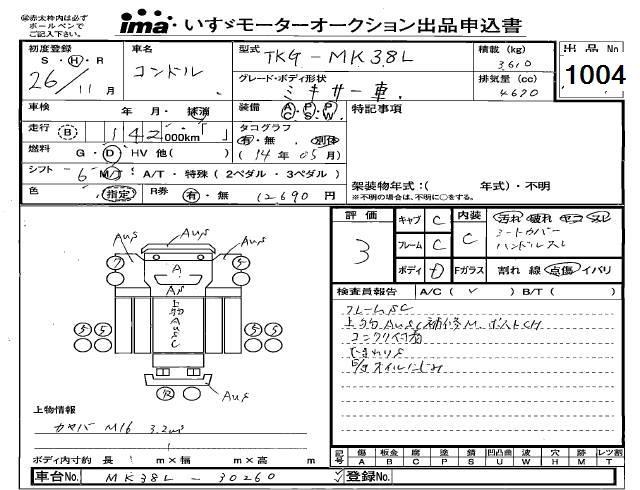 ㊟赤太枠内は必ず
ボールペンで
ご記入下さい。
ima いすゞモーターオークション出品申込書
初度登録
S・H・R
26/11月
車名
コンドル
型式
TKG-MK38L
積載 (kg)
3610
出品 No
1004
グレード・ボディ形状
ミキサー車
排気量 (cc)
4670
車検 年 月・抹消
装備 A/C P/S P/W
特記事項
走行 B 142,000km
タコグラフ
有・無、別体
(14年05月)
燃料 G・D HV 他( )
シフト 6 M/T A/T・特殊(2ペダル・3ペダル)
架装物年式:( 年式)・不明
※不明の場合は、不明に○をする。
色 指定 R券 有・無 12690 円
評価
3
キャブ C 内装 C 汚れ 破れ ヤニ スレ
シートカバー
ハンドルスレ
フレーム C
ボディ D Fガラス 割れ 線 点傷 イバリ
検査員報告 A/C( ✓ ) B/T( )
フレームSC
上物AUSC補修M、ポストCH
コンクリ付着
E/gオイルにじみ
AUS
AUS
AUS
7
5
A
AS
上物AUSC
5
5
5
5
AUS
上物情報
カヤバ M16 3.2m³
ボディ内寸約 長 m×幅 m×高 m
記号 傷A 板金B 腐C 塗P 錆S 凹凸曲U 波W 穴H 跡M レンズ割T
車台No. MK38L-30260
登録No.